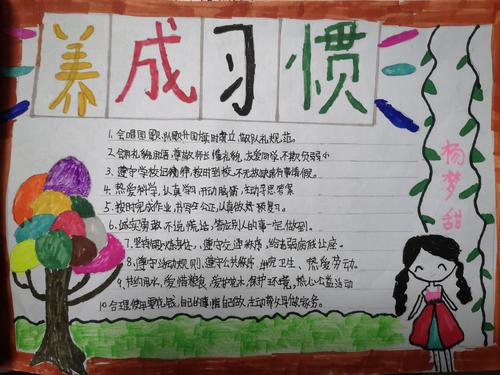 养成习惯
1. 会唱国歌,队歌升国旗时肃立,敬队礼规范。
2.会用礼貌用语,尊敬师长懂礼貌,友爱同学,不欺负弱小
3. 遵守学校纪律,按时到校,不无故缺席有事请假。
4. 热爱科学,认真学习开动脑筋,主动寻思答案
5、按时完成作业,书写工正,认真做好预习。
6、诚实勇敢不说慌话,答应别人的事一定做到。
7. 坚持锻炼身体,遵守交通秩序,给老弱病残让座。
8、遵守活动规则,遵守公共秩序 卫生、热爱劳动。
9、节约用水,爱惜粮食,爱护花木,保护环境,热心公益活动
10.合理使用零花钱,自己的事情自己做,主动帮父母做家务。
杨梦甜